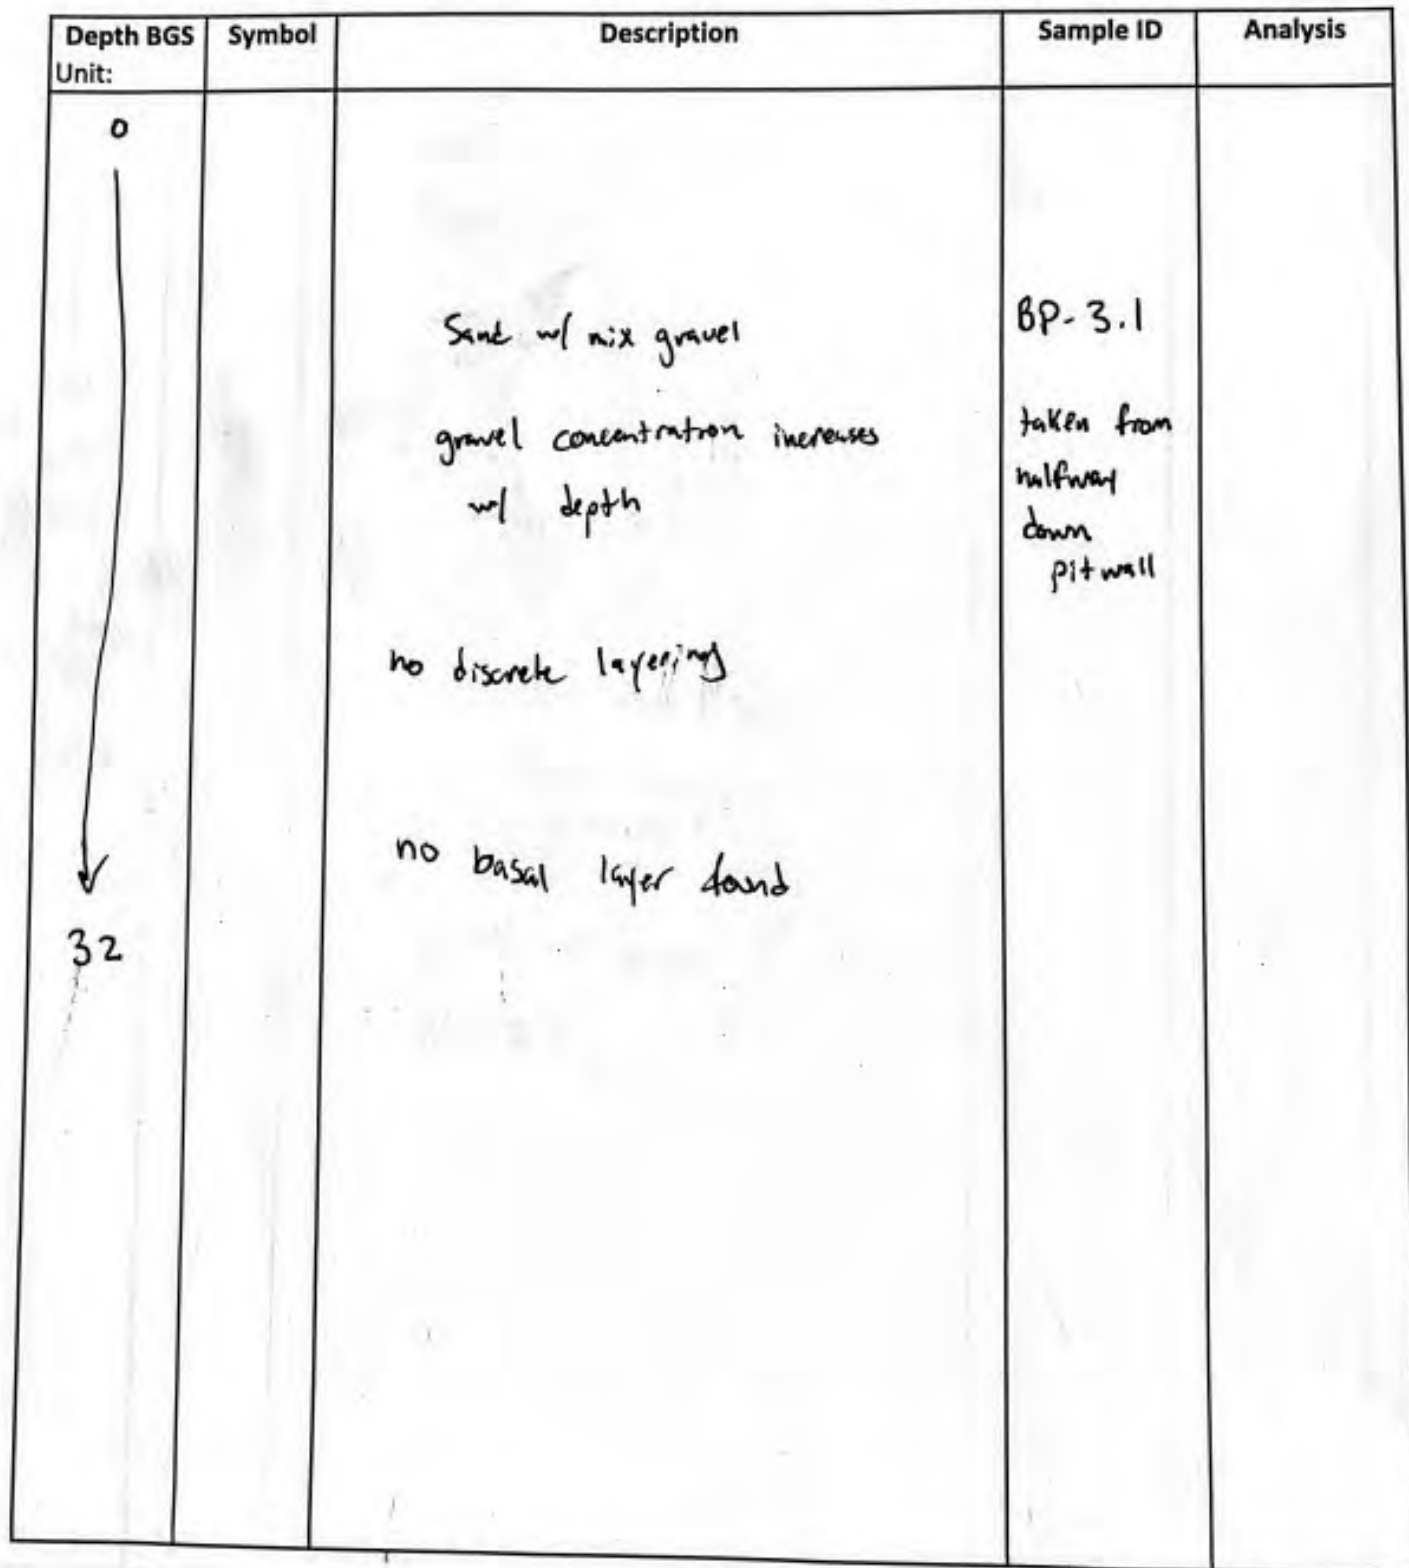 Depth BGS
Unit:
Symbol
Description
Sample ID
Analysis
0
32
Sand w/ mix gravel
gravel concentration increases
w/ depth
no discrete layering
no basal layer found
BP-3.1
taken from
halfway
down
pit wall